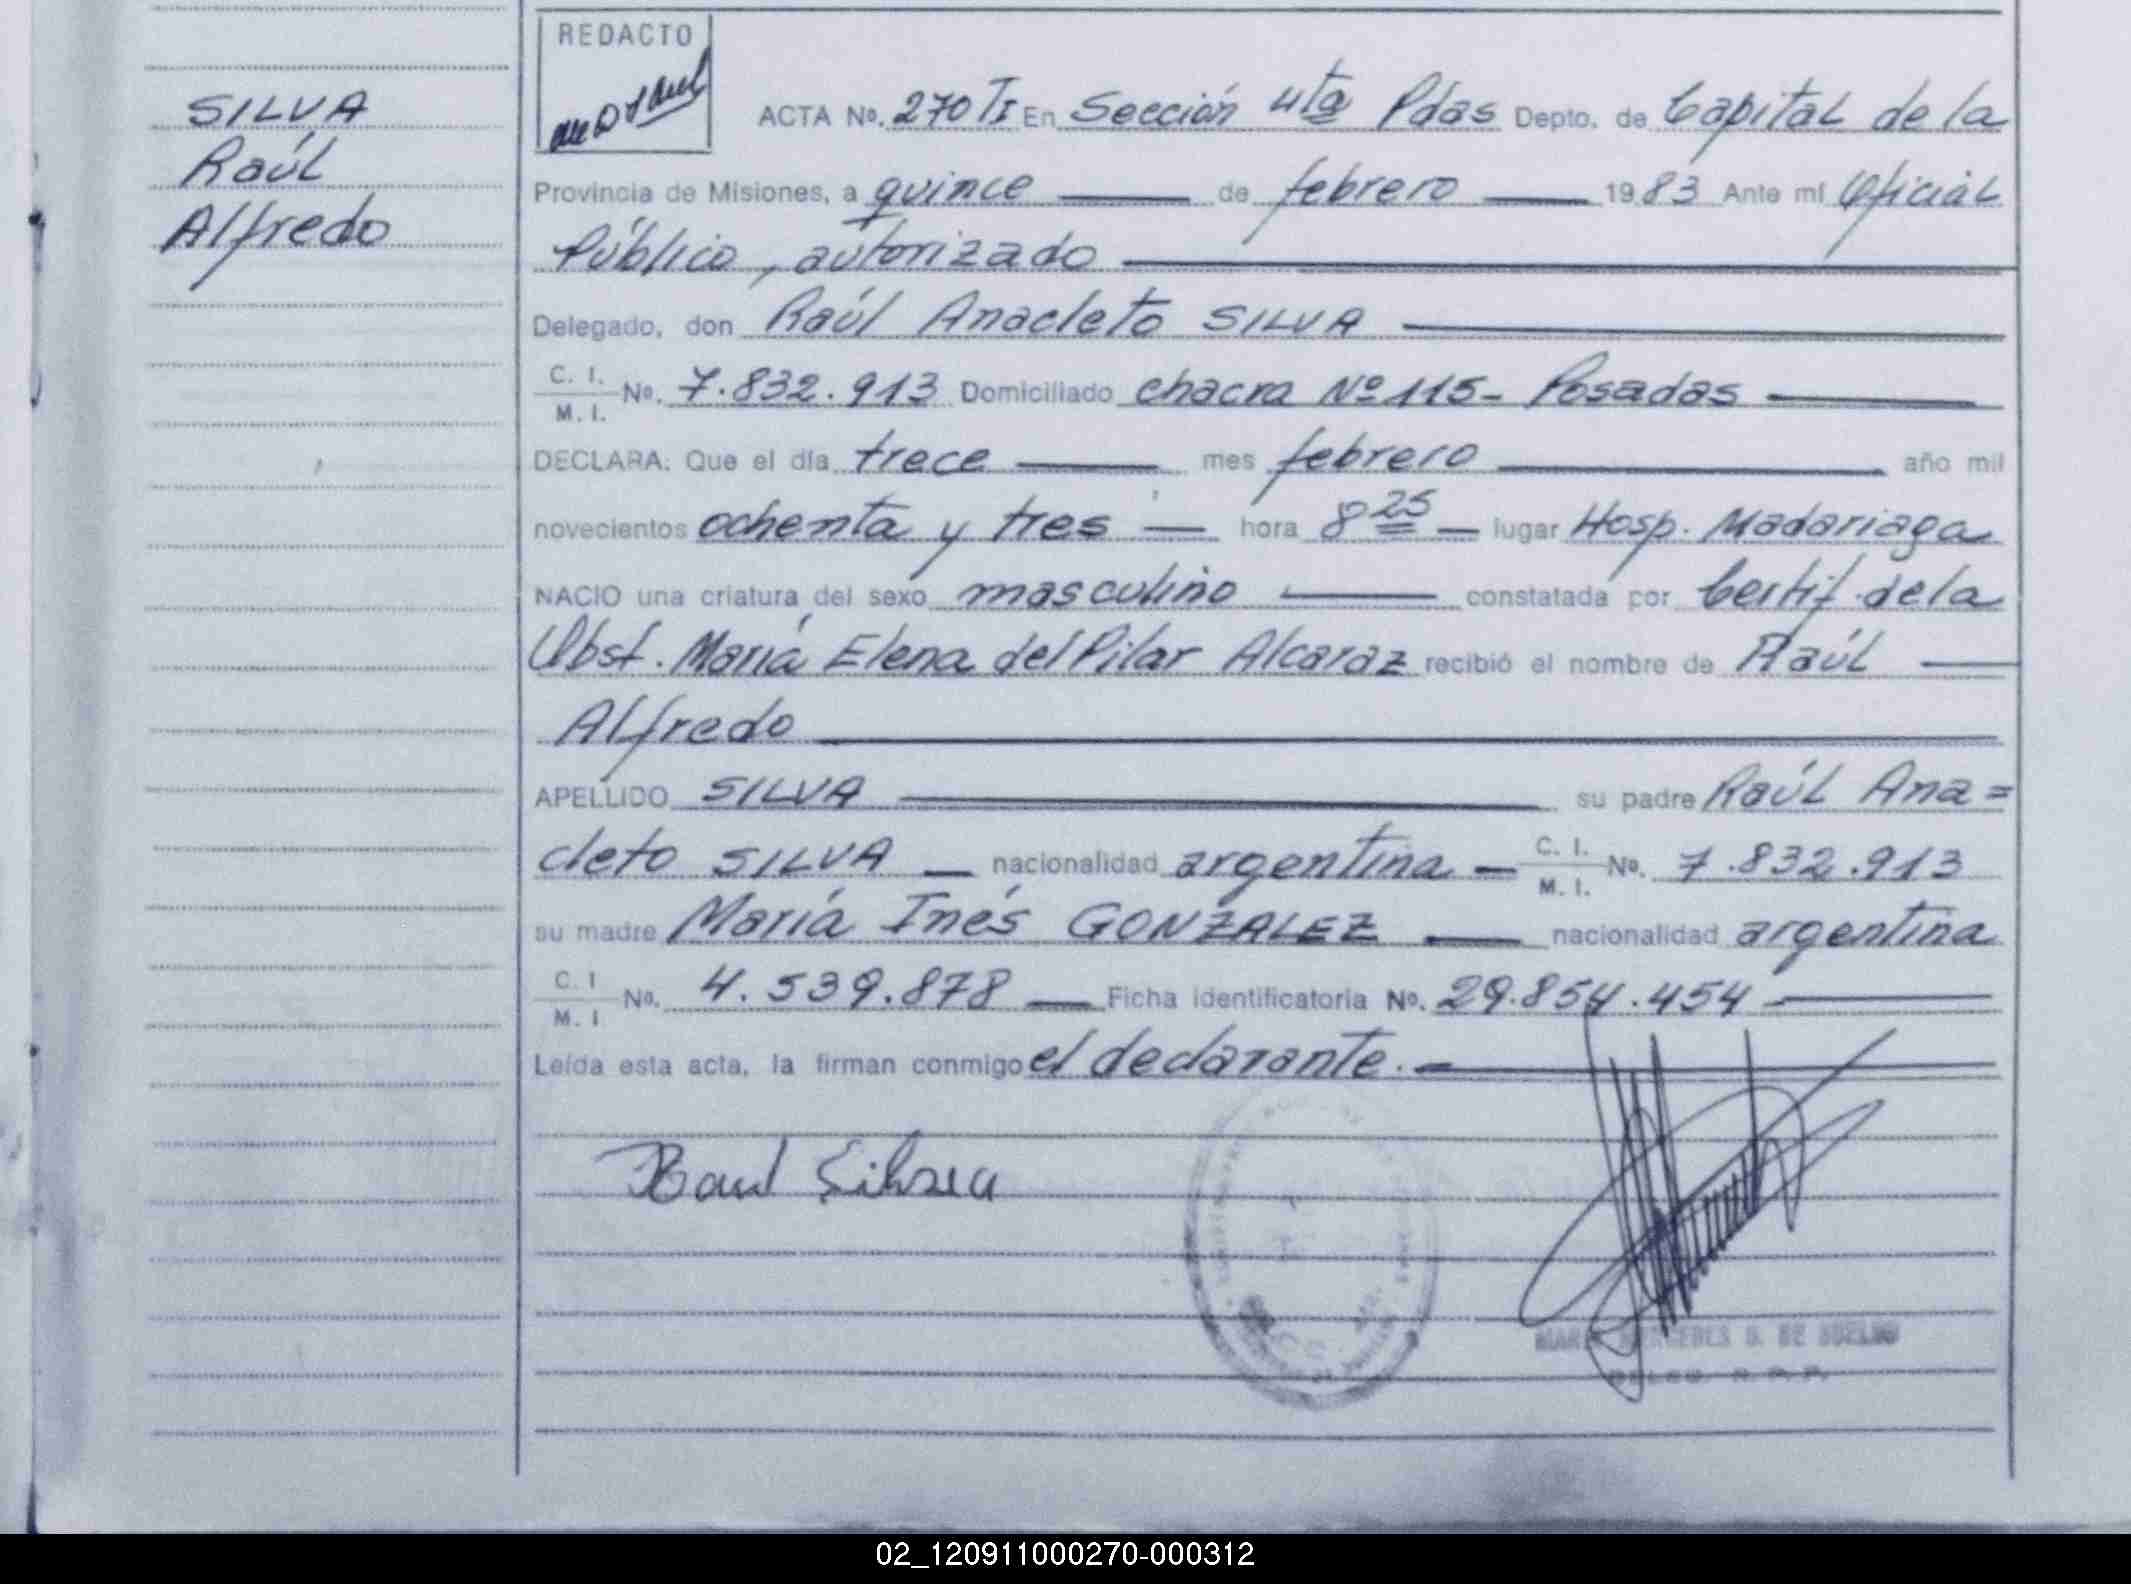 SILVA
Raúl
Alfredo
REDACTO
ACTA Nº. 270 TI En Sección 4ta Pdas Depto. de Capital de la
Provincia de Misiones, a quince de febrero 1983 Ante mí Oficial
Público, autorizado
Delegado, don Raúl Anacleto SILVA
C. I. / M. I. Nº. 7.832.913 Domiciliado chacra Nº 115- Posadas
DECLARA: Que el día trece mes febrero año mil
novecientos ochenta y tres hora 8 25 lugar Hosp. Madariaga
NACIO una criatura del sexo masculino constatada por Certif. de la
Obst. María Elena del Pilar Alcaraz recibió el nombre de Raúl
Alfredo
APELLIDO SILVA su padre Raúl Ana=
cleto SILVA nacionalidad argentina C. I. / M. I. Nº. 7.832.913
su madre María Inés GONZALEZ nacionalidad argentina
C. I / M. I Nº. 4.539.878 Ficha identificatoria Nº. 29.854.454
Leída esta acta, la firman conmigo el declarante.
Raul Silva
DE
02_120911000270-000312